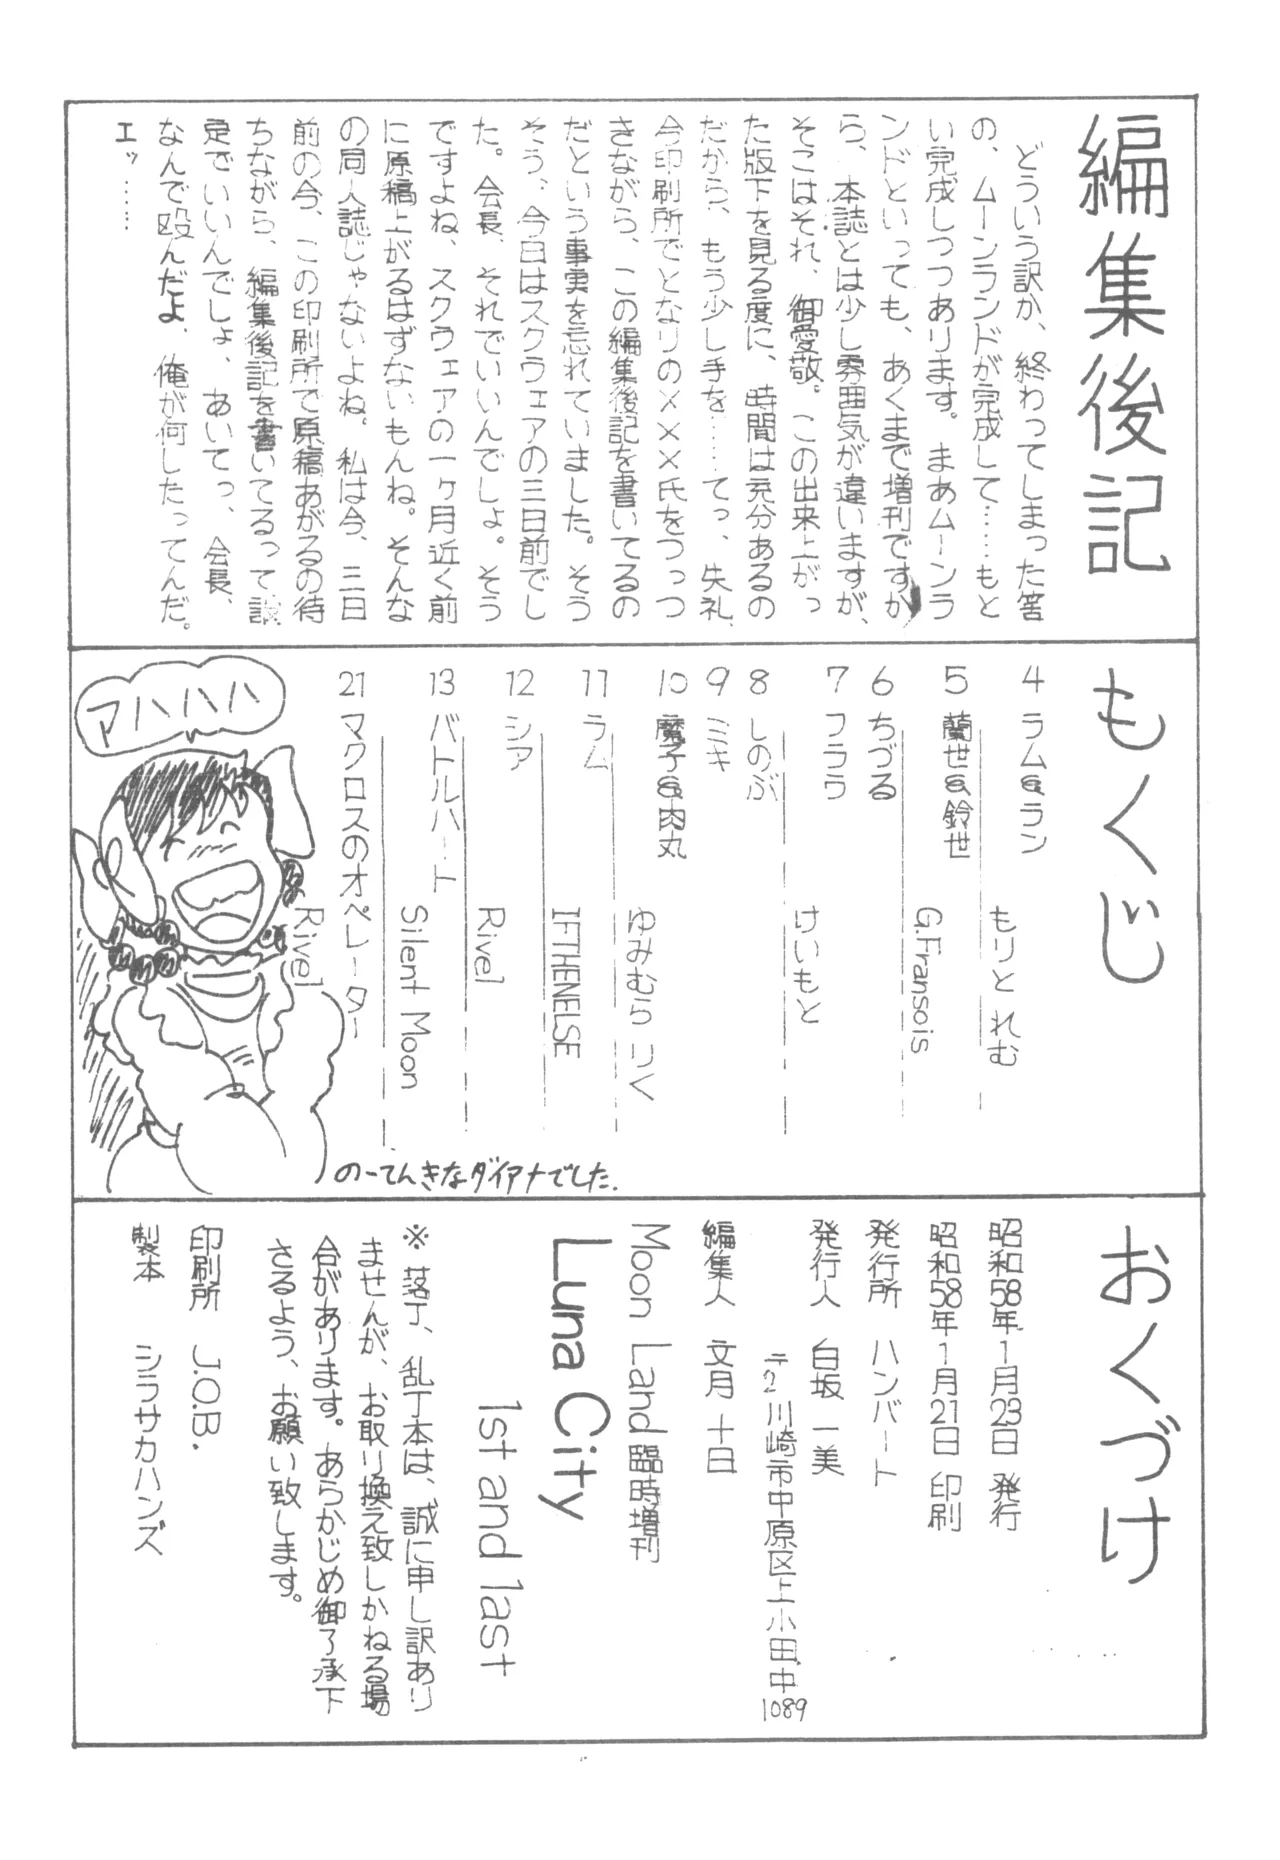 編集後記
どういう訳か、終わってしまった筈
の、ムーンランドが完成して……もと
い完成しつつあります。まあムーンラ
ンドといっても、あくまで増刊ですか
ら、本誌とは少し雰囲気が違いますが、
そこはそれ、御愛敬。この出来上がっ
た版下を見る度に、時間は充分あるの
だから、もう少し手を……てっ、失礼、
今印刷所でとなりの×××氏をつっつ
きながら、この編集後記を書いてるの
だという事実を忘れていました。そう
そう、今日はスクウェアの三日前でし
た。会長、それでいいんでしょ。そう
ですよね、スクウェアの一ヶ月近く前
に原稿上がるはずないもんね。そんな
の同人誌じゃないよね。私は今、三日
前の今、この印刷所で原稿あがるの待
ちながら、編集後記を書いてるって設
定でいいんでしょ、あいてっ、会長、
なんで殴んだよ、俺が何したってんだ。
エッ……
もくじ
4 ラム&ラン
もりと れむ
5 蘭世&鈴世
G.Fransois
6 ちづる
7 フララ
けいもと
8 しのぶ
9 ミキ
10 魔子&肉丸
ゆみむら りく
11 ラム
IFTHENELSE
12 シア
Rivel
13 バトルハート
Silent Moon
21 マクロスのオペレーター
Rivel
アハハハ
のーてんきなダイアナでした.
おくづけ
昭和58年1月23日 発行
昭和58年1月21日 印刷
発行所 ハンバート
発行人 白坂 一美
〒2川崎市中原区上小田中
1089
編集人 文月 十日
Moon Land臨時増刊
Luna City
1st and last
※ 落丁、乱丁本は、誠に申し訳あり
ませんが、お取り換え致しかねる場
合があります。あらかじめ御了承下
さるよう、お願い致します。
印刷所 J.O.B.
製本 シラサカハンズ